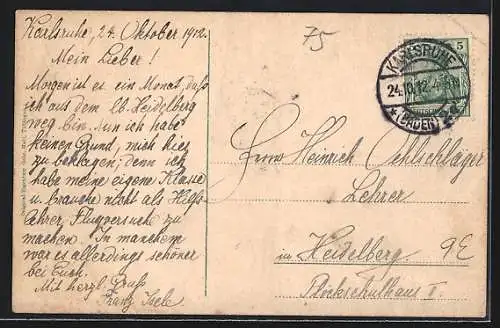 Karlsruhe, 24. Oktober 1912.
Mein Lieber!
Morgen ist es ein Monat, daß
ich aus dem lb. Heidelberg
weg bin. Nun ich habe
keinen Grund, mich hier
zu beklagen; denn ich
habe meine eigene Klasse
u. brauche nicht als Hilfs-
lehrer Flugversuche zu
machen. In manchem
war es allerdings schöner
bei Euch.
Mit herzl. Gruß
Franz
75
5
KARLSRUHE
24.10.12
*(BADEN)
Herrn Heinrich Oehlschläger
Lehrer
in Heidelberg
Plöckschulhaus I.